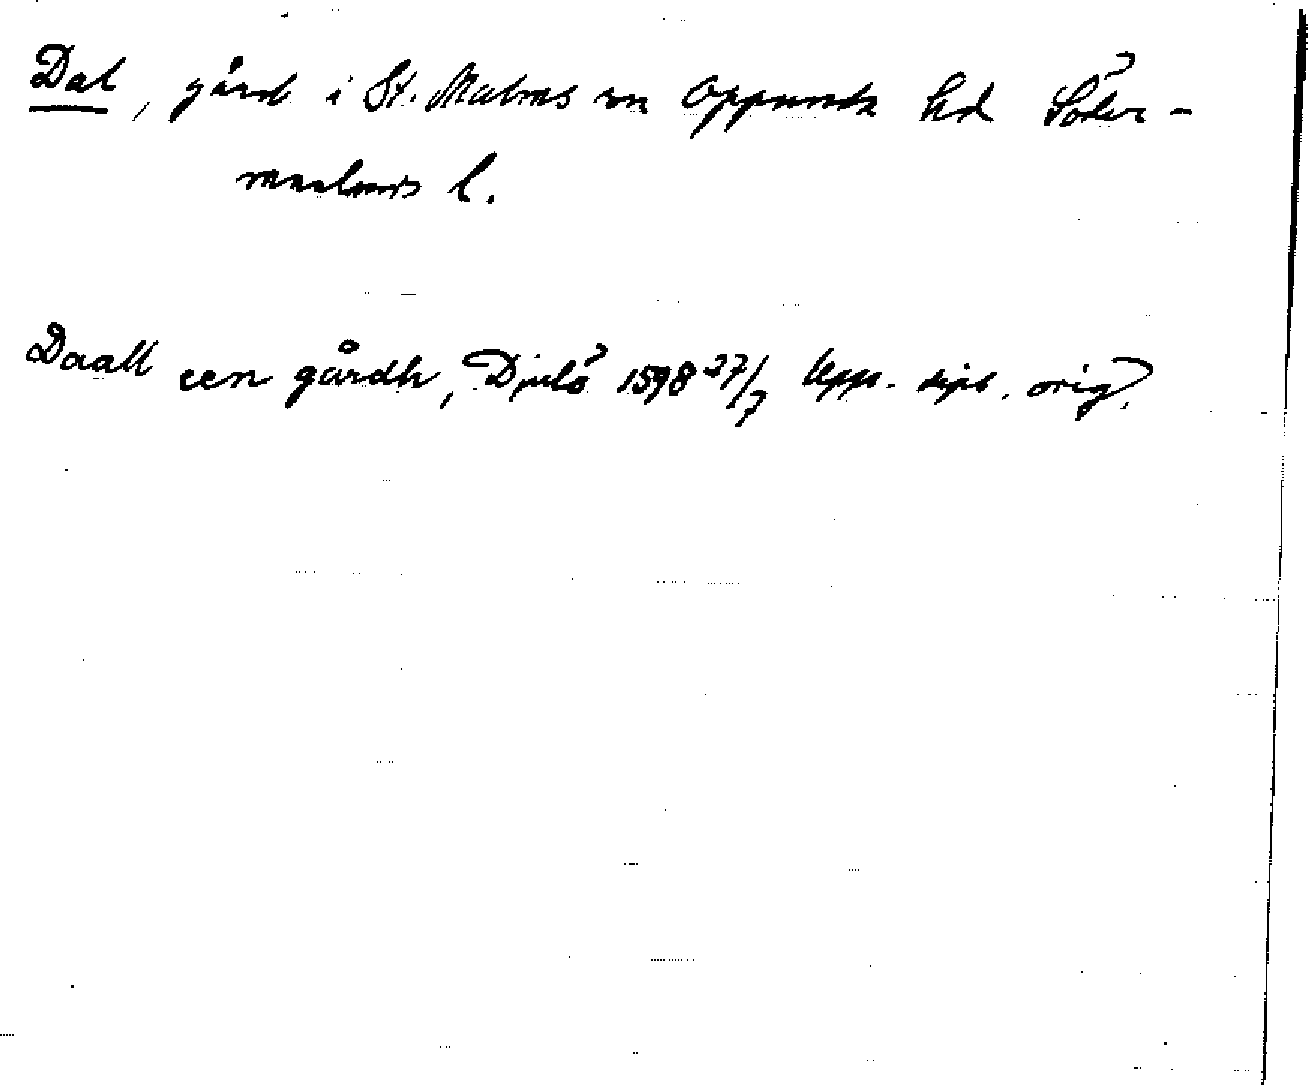 Dal, gård i St. Malms sn Oppunda hd Söder-
manlands l.
Daall een gårdh, Djulö 1598 27/7 Upps. dipl. orig.